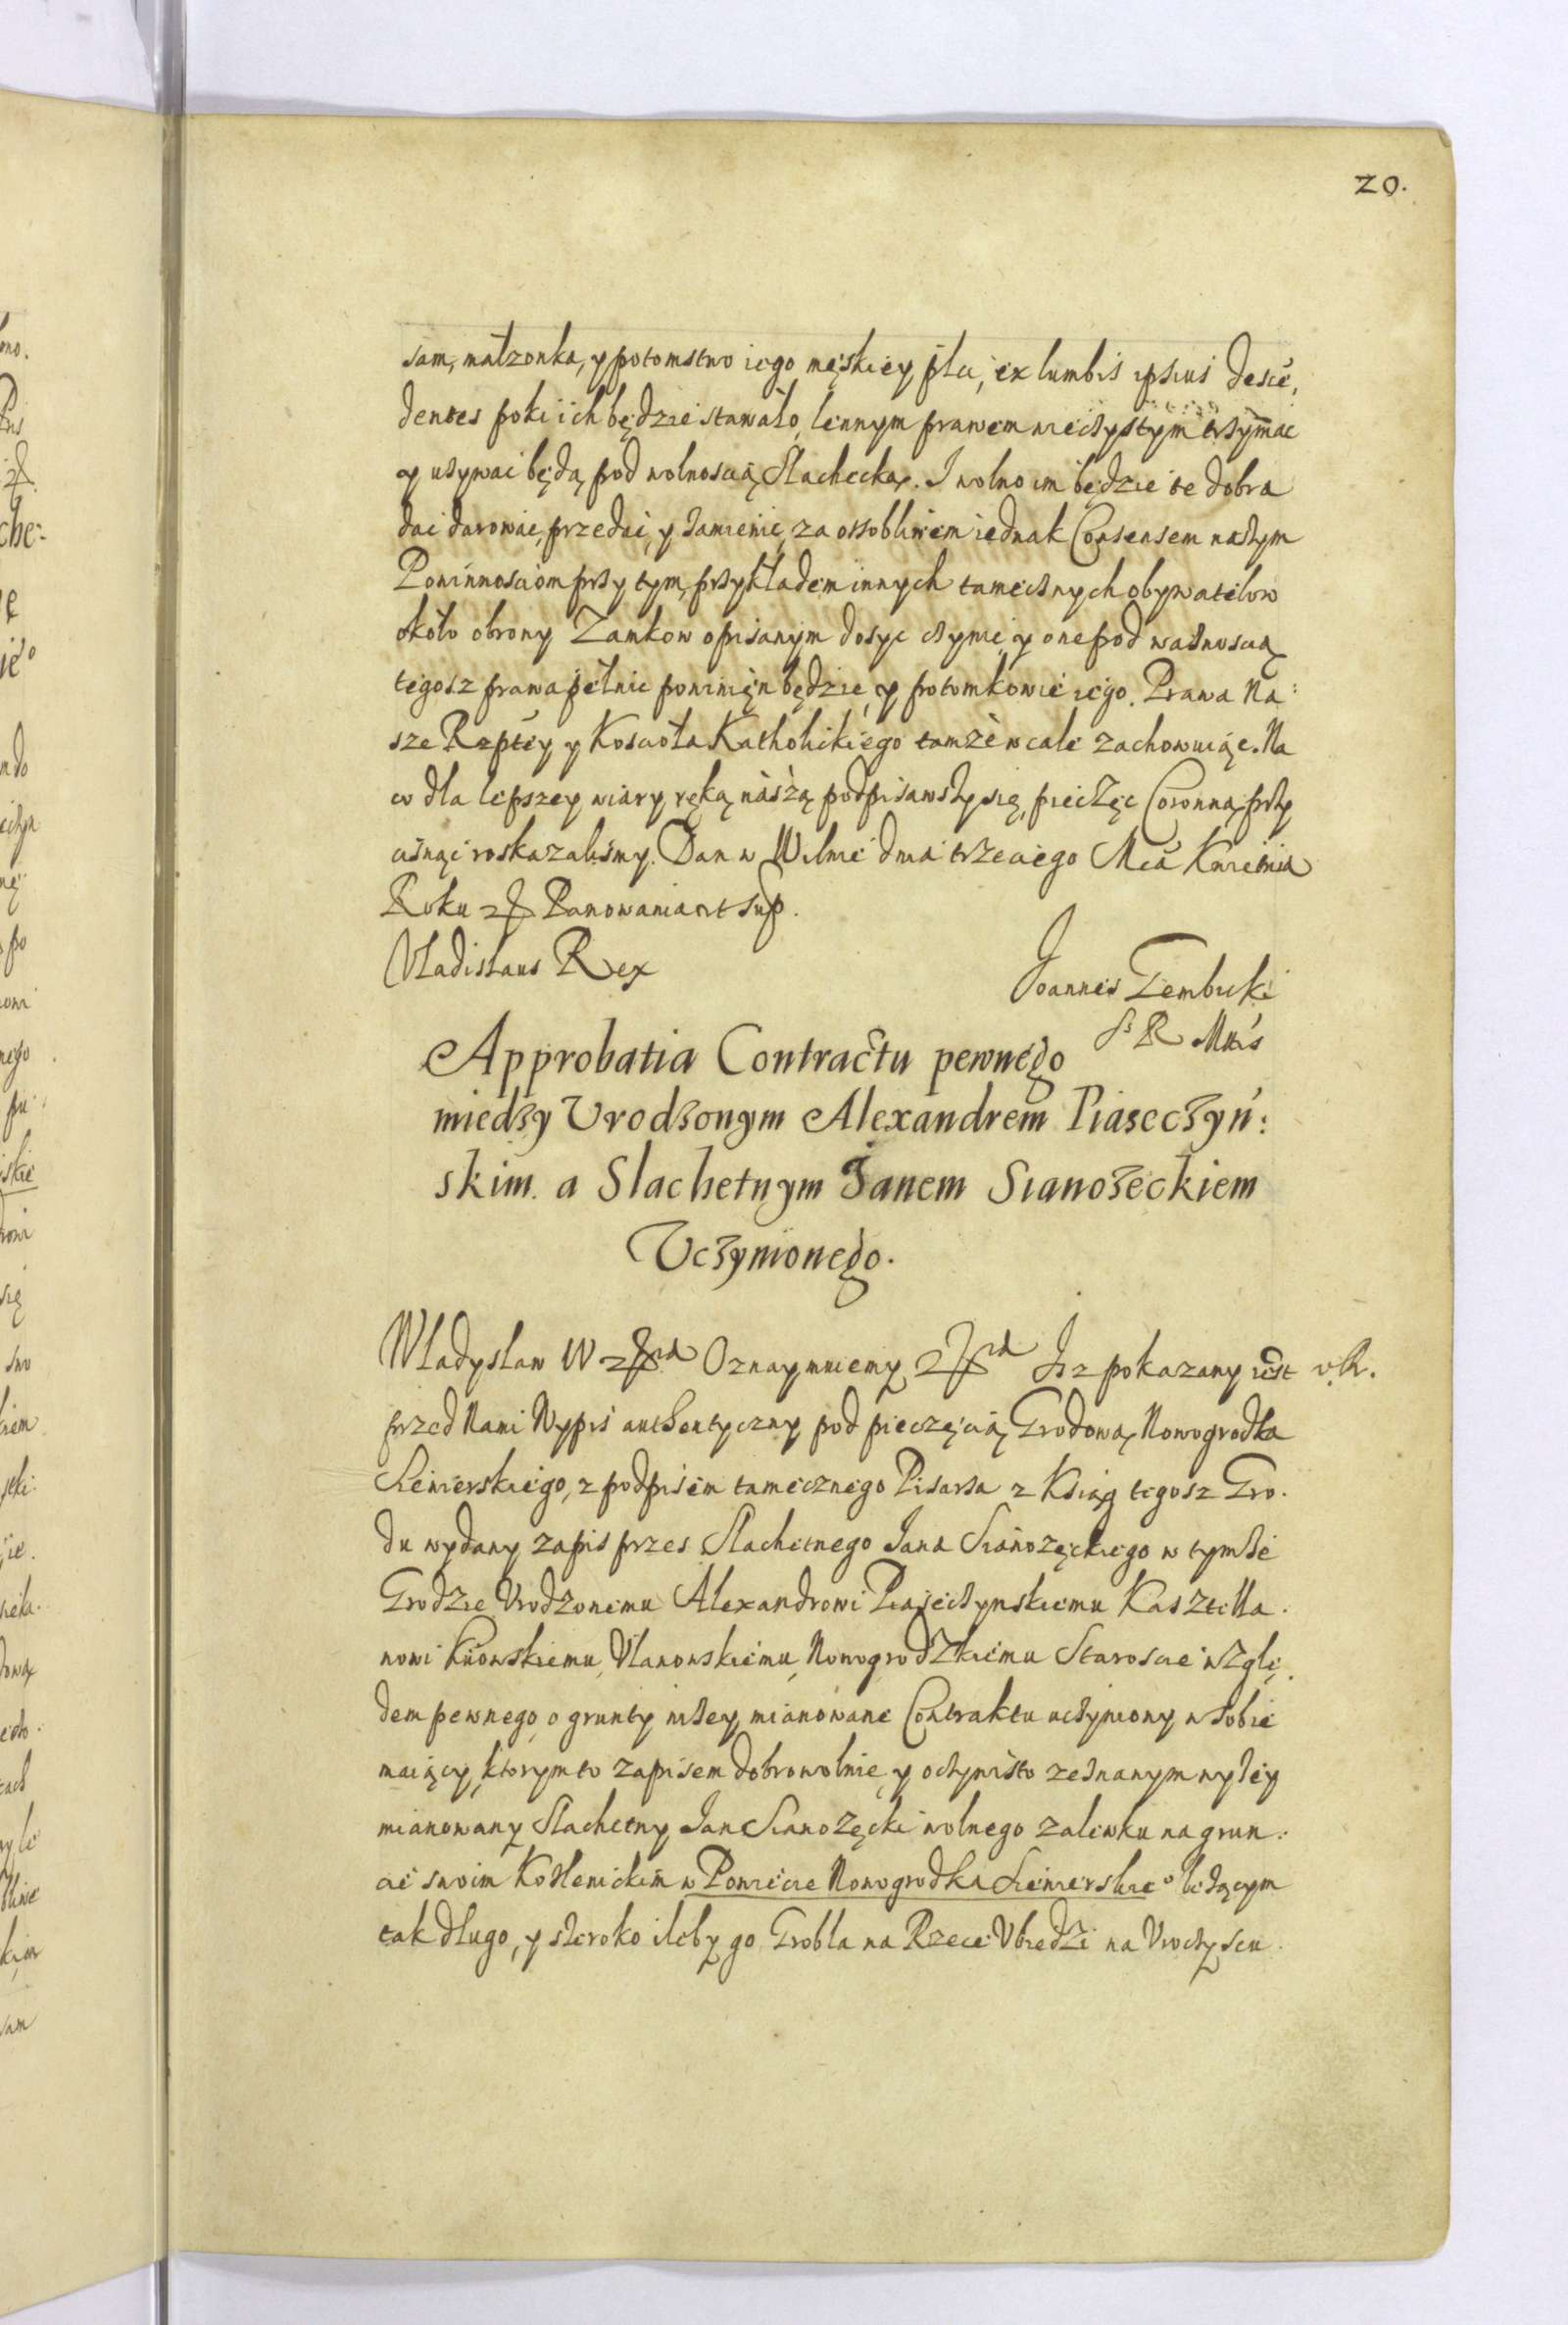 20.
sam, małzonka, y potomstwo iego męskiey płci, ex lumbis ipsius desce,
dentes poki ich będzie stawało, lennym prawem wieczystym trzymac
y uzywac będą pod wolnoscią Slachecką. I wolno im będzie te dobra
dac darowac, przedac, y zamienic, za ossobliwem iednak Consensem naszym
Powinnosciom przy tym, przykładem innych tamecznych obywatelow
około obrony Zamkow opisanym dosyc czynic, y one pod waznoscią
tegosz prawa pełnic powinięn będzie, y potomkowie iego. Prawa Na:
sze Rzptey y Koscioła Katholickiego tamze w cale zachowuiąc. Na
co dla lepszey wiary ręką nászą podpisawszy się, pieczęc Coronną przy
cisnąc roskazalismy. Dan w Wilnie dnia trzeciego Mca Kwietnia
Roku Panowania ut sup.
Vladislaus Rex
Joannes Gembicki
S R Mttis
Approbatia Contractu pewnego
miedzy Vrodzonym Alexandrem Piaseczyń:
skim. a Slachetnym Janem Sianozeckiem
Vczynionego.
Władysław IV Oznaymuiemy Isz pokazany iest v.R.
przed Nami Wypis authentyczny pod pieczęcią Grodową Nowogrodka
Siewierskiego, z podpisem tamecznego Pisarza z Ksiąg tegosz Gro.
du wydany zapis przes Slachetnego Jana Sianozęckiego w tymze
Grodzie Vrodzonemu Alexandrowi Piaseczynskiemu Kasztella.
nowi Kiiowskiemu, Vlanowskiemu, Nowogrodzkiemu Staroscie wzglę.
dem pewnego o grunty nizey mianowane Contraktu uczyniony w sobie
maiący, ktorym to zapisem dobrowolnie y oczywisto zeznanym wyzey
mianowany Slachetny Jan Sianozęcki wolnego zalewku na grun:
cie swoim Kozlenickim w Powiecie Nowogrodka Siewierskieo lezącym
tak długo, y szeroko ileby go Grobla na Rzece Vbiedzi na Vroczyscu.